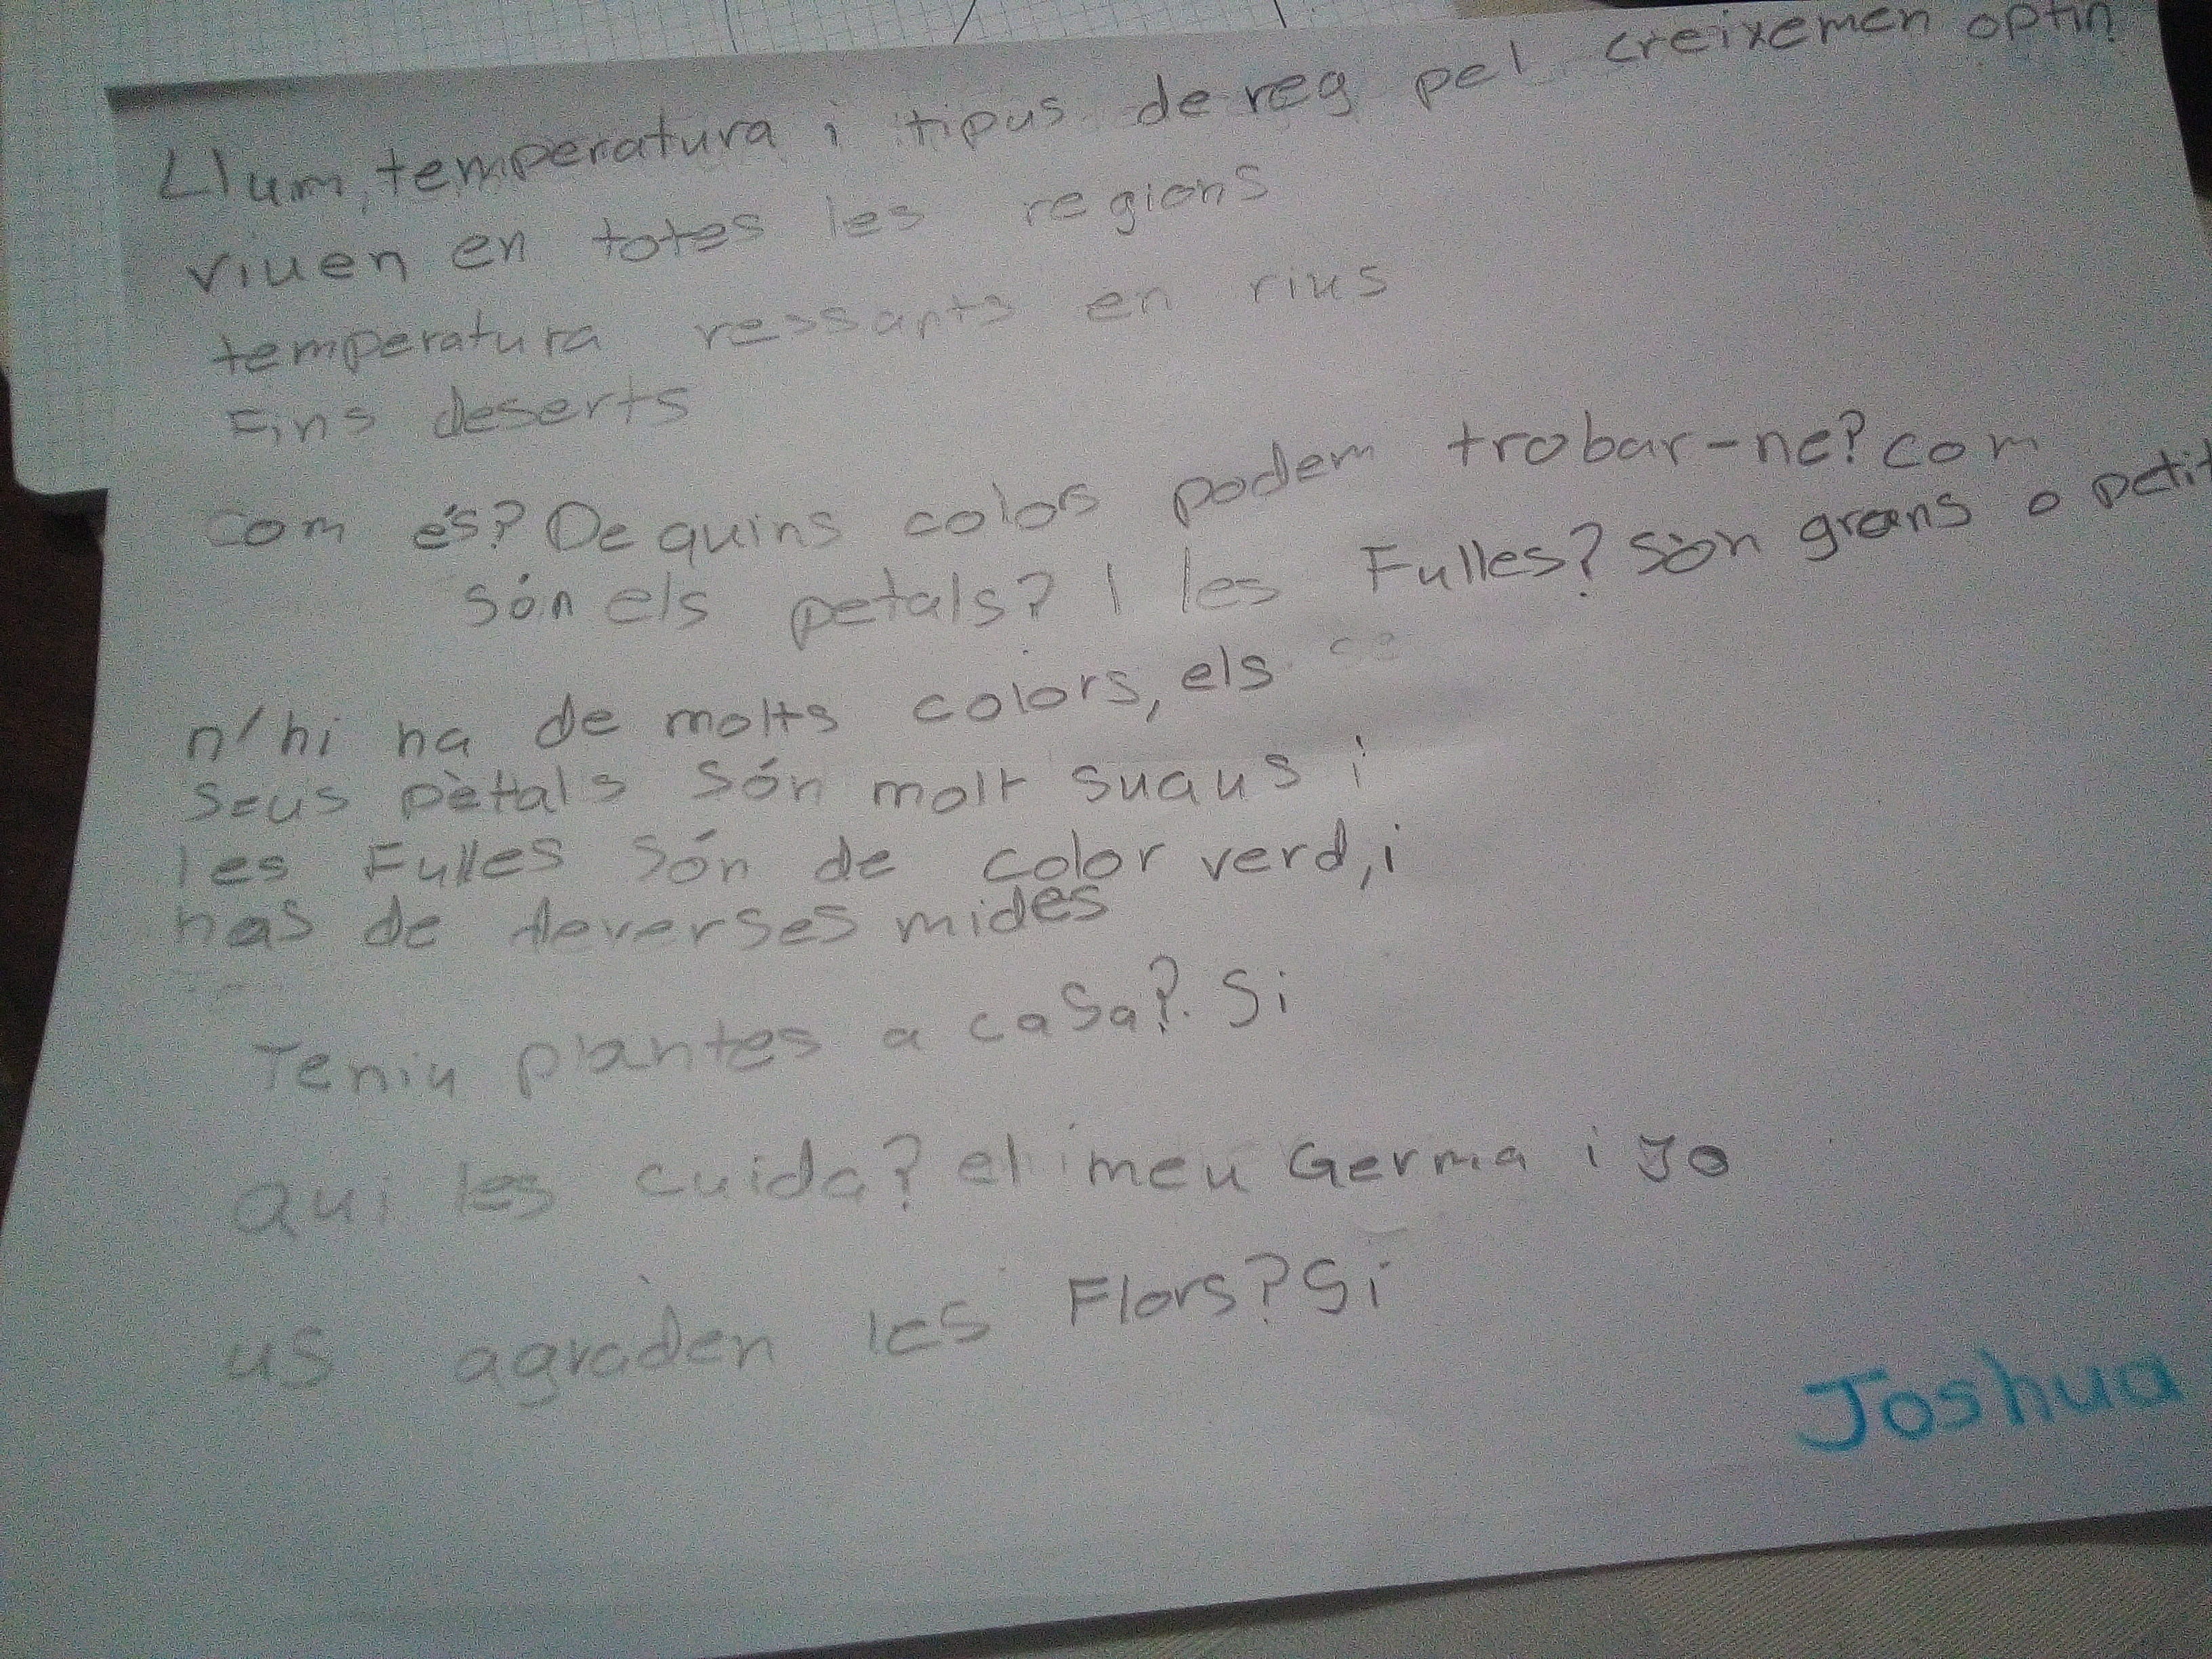 Llum, temperatura i tipus de reg pel creixemen optin
viuen en totes les regions
temperatura ressants en rius
Fins deserts
com és? De quins colors podem trobar-ne? com
són els petals? I les Fulles? Són grans o petit
n'hi ha de molts colors, els
seus pètals són molt suaus i
les Fulles són de color verd, i
nas de deverses mides
Teniu plantes a casa?. Si
qui les cuida? el meu Germa i Jo
us agraden les Flors? Si
Joshua